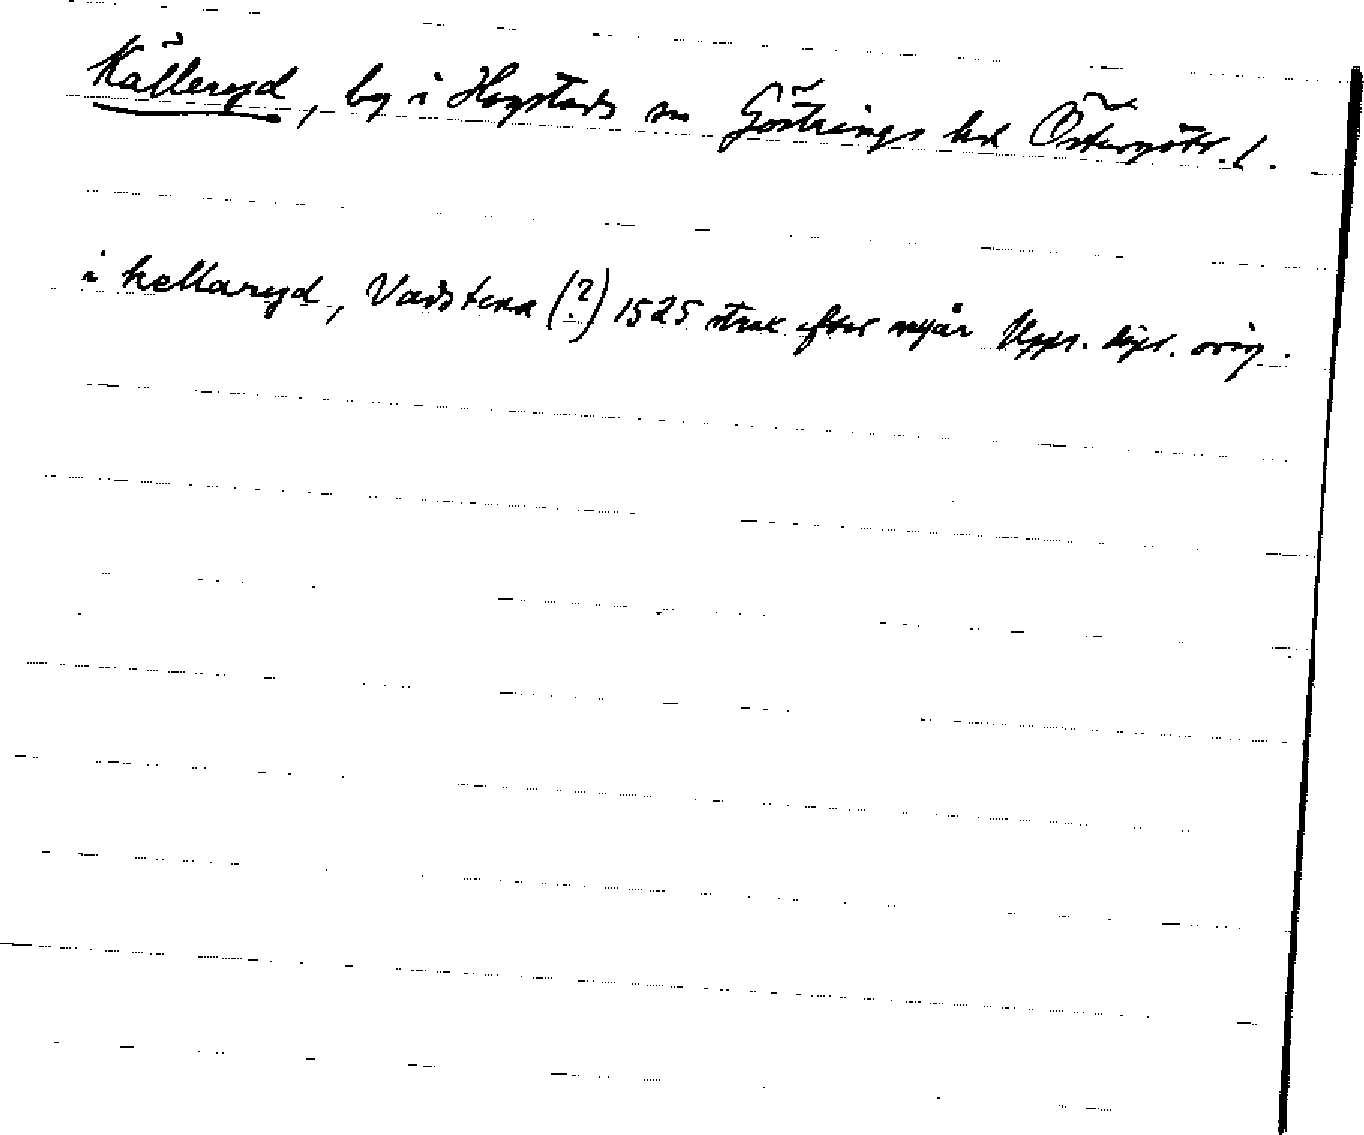 Källeryd, by i Hogstads sn Göstrings hd Östergötl. l.
i kellaryd, Vadstena (?) 1525 strax efter nyår Upps. dipl. orig.